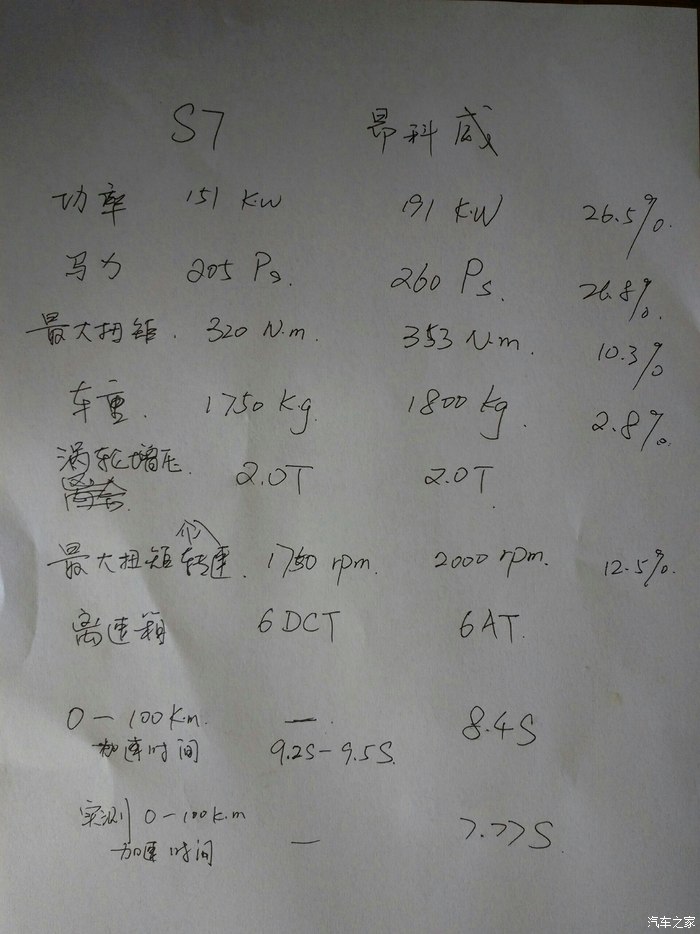 S7 昂科威
功率 151 KW 191 KW 26.5%
马力 205 Ps. 260 Ps. 26.8%
最大扭矩. 320 N.m. 353 N.m. 10.3%
车重. 1750 Kg. 1800 kg. 2.8%
涡轮增压. 2.0T 2.0T
最大扭矩转速. 1750 rpm. 2000 rpm. 12.5%
离速箱 6DCT 6AT.
0—100Km. — 8.4S
加速时间 9.2S-9.5S.
实测 0—100k.m — 7.77S.
加速时间
汽车之家